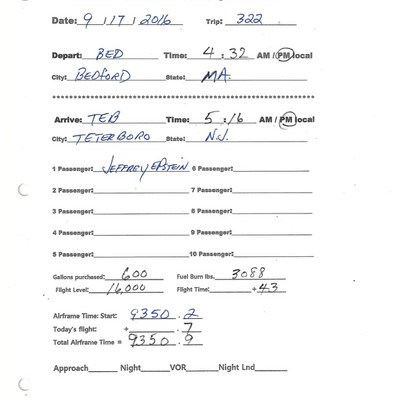 Date: 9 / 17 / 2016 Trip: 322
Depart: BED Time: 4 : 32 AM / PM local
City: BEDFORD State: MA.
Arrive: TEB Time: 5 : 16 AM / PM local
City: TETERBORO State: N.J.
1 Passenger: JEFFREY EPSTEIN 6 Passenger:
2 Passenger: 7 Passenger:
3 Passenger: 8 Passenger:
4 Passenger: 9 Passenger:
5 Passenger: 10 Passenger:
Gallons purchased: 600 Fuel Burn lbs. 3088
Flight Level: 16,000 Flight Time: +43
Airframe Time: Start: 9350 . 2
Today's flight: + . 7
Total Airframe Time = 9350 . 9
Approach Night VOR Night Lnd